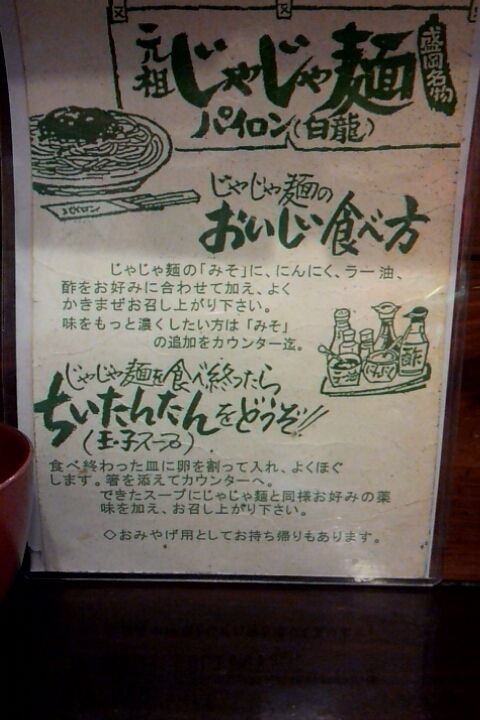 元祖
じゃじゃ麺
盛岡名物
パイロン(白龍)
パイロン
じゃじゃ麺の
おいしい食べ方
じゃじゃ麺の「みそ」に、にんにく、ラー油、
酢をお好みに合わせて加え、よく
かきまぜお召し上がり下さい。
味をもっと濃くしたい方は「みそ」
の追加をカウンター迄。
ラー油
にんにく
酢
じゃじゃ麺を食べ終ったら
ちいたんたんをどうぞ!!
(玉子スープ)
食べ終わった皿に卵を割って入れ、よくほぐ
します。箸を添えてカウンターへ。
できたスープにじゃじゃ麺と同様お好みの薬
味を加え、お召し上がり下さい。
◇おみやげ用としてお持ち帰りもあります。